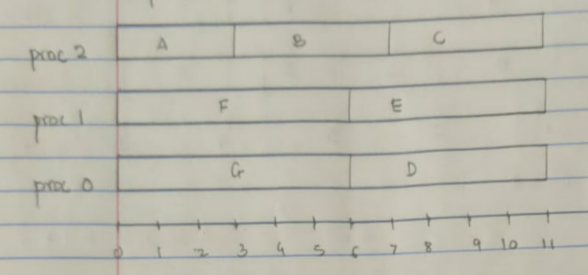 proc 2 A B C
proc 1 F E
proc 0 G D
0 1 2 3 4 5 6 7 8 9 10 11